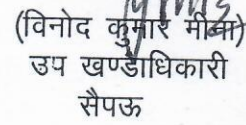 (विनोद कुमार मीना)
उप खण्डाधिकारी
सैपऊ